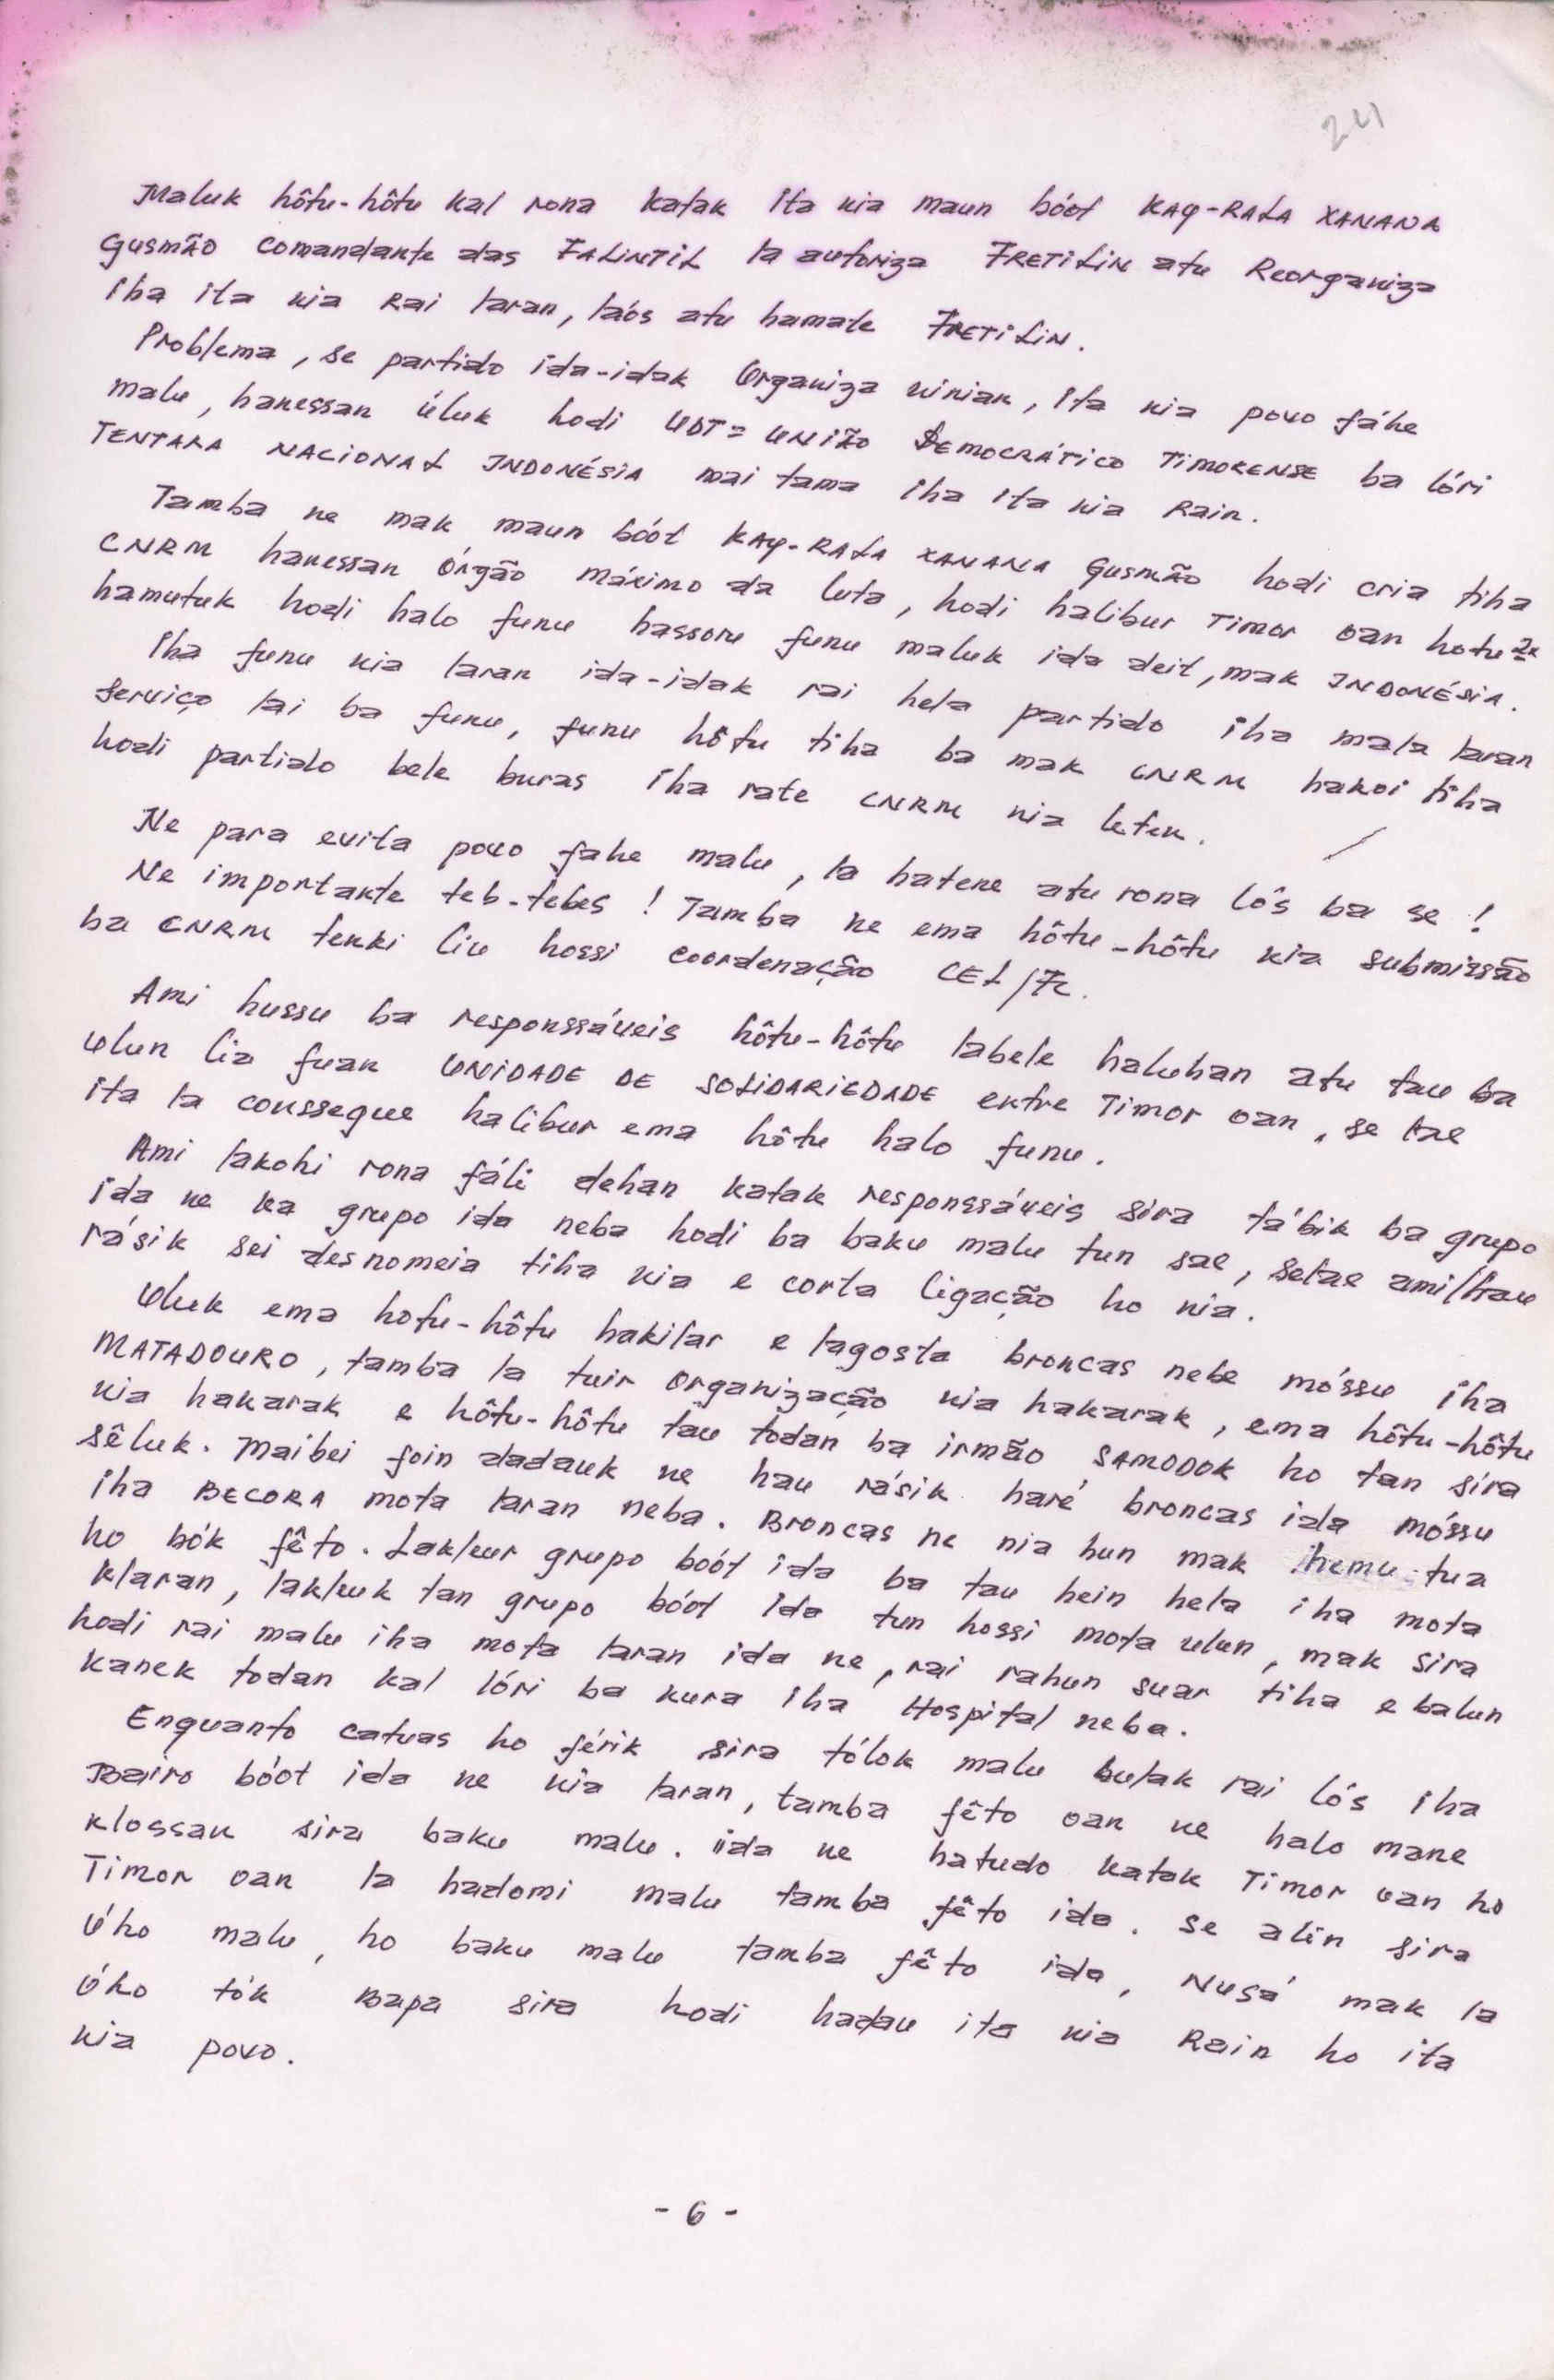 24
Maluk hôtu-hôtu kal rona katak ita nia maun bóot KAY-RALA XANANA
Gusmão comandante das FALINTIL la autoriza FRETILIN atu Reorganiza
iha ita nia Rai laran, láos atu hamate FRETILIN.
Problema, se partido ida-idak Organiza ninian, ita nia povo fáhe
malu, hanessan úluk hodi UDT= UNIÃO DEMOCRÁTICO TIMORENSE ba lóri
TENTARA NACIONAL INDONÉSIA mai tama iha ita nia Rain.
Tamba ne mak maun bóot KAY-RALA XANANA Gusmão hodi cria tiha
CNRM hanessan órgão máximo da luta, hodi halibur Timor oan hotu 2x
hamutuk hodi halo funu hassoru funu maluk ida deit, mak INDONÉSIA.
Iha funu nia laran ida-idak rai hela partido iha mala laran
serviço lai ba funu, funu hôtu tiha ba mak CNRM hakoi tiha
hodi partido bele buras iha rate CNRM nia leten.
Ne para evita povo fahe malu, la hatene atu rona lôs ba se!
Ne importante teb-tebes! Tamba ne ema hôtu-hôtu nia submissão
ba CNRM tenki liu hossi coordenação CEL/FC.
Ami hussu ba responssáveis hôtu-hôtu labele haluhan atu tau ba
ulun lia fuan UNIDADE DE SOLIDARIEDADE entre Timor oan, se lae
ita la conssegue halibur ema hôtu halo funu.
Ami lakohi rona fáli dehan katak responssáveis sira tábik ba grupo
ida ne ka grupo ida neba hodi ba baku malu tun sae, selae ami/hau
rásik sei desnomeia tiha nia e corta ligação ho nia.
Uluk ema hotu-hôtu hakilar e lagosta broncas nebe móssu iha
MATADOURO, tamba la tuir organização nia hakarak, ema hôtu-hôtu
nia hakarak e hôtu-hôtu tau todan ba irmão SAMODOK ho tan sira
sêluk. Maibei foin dadauk ne hau rásik haré broncas ida móssu
iha BECORA mota laran neba. Broncas ne nia hun mak hemu tua
ho bók fêto. Lakleur grupo boót ida ba tau hein hela iha mota
klaran, lakleuk tan grupo bóot ida tun hossi mota ulun, mak sira
hodi rai malu iha mota laran ida ne, rai rahun suar tiha e balun
kanek todan kal lóri ba kura iha Hospital neba.
Enquanto catuas ho férik sira tólok malu butak rai lós iha
Bairo bóot ida ne nia laran, tamba fêto oan ne halo mane
klossan sira baku malu. iida ne hatudo katak Timor oan ho
Timor oan la hadomi malu tamba fêto ida. Se alin sira
óho malu, ho baku malu tamba fêto ida, Nusá mak la
óho tók Bapa sira hodi hadau ita nia Rain ho ita
nia povo.
- 6 -